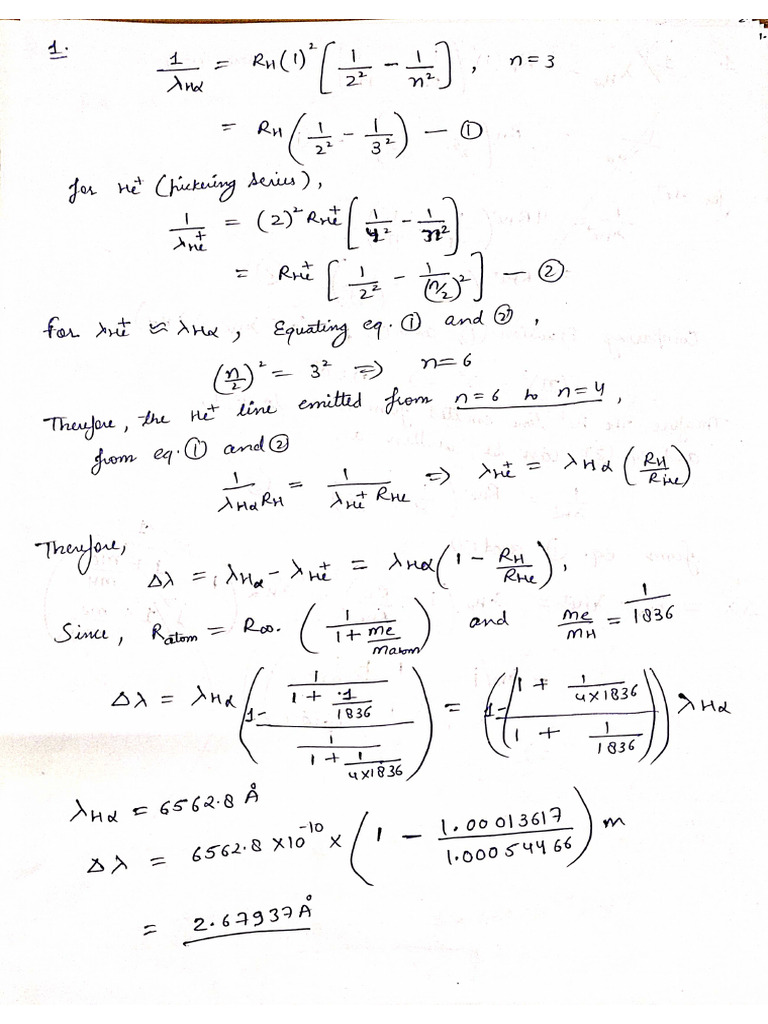 1.
1/λHα = RH(1)² [1/2² − 1/n²], n=3
= RH(1/2² − 1/3²) — ①
for He⁺ (pickering series),
1/λHe⁺ = (2)² RHe⁺ [1/4² − 1/n²]
= RHe⁺ [1/2² − 1/(n/2)²] — ②
for λHe⁺ ≈ λHα, Equating eq. ① and ②,
(n/2)² = 3² ⇒ n=6
Therefore, the He⁺ line emitted from n=6 to n=4,
from eq. ① and ②
1/λHα RH = 1/λHe⁺ RHe ⇒ λHe⁺ = λHα (RH/RHe)
Therefore,
Δλ = λHα − λHe⁺ = λHα(1 − RH/RHe),
Since, Ratom = R∞. (1/(1+me/matom)) and me/mH = 1/1836
Δλ = λHα (1 − (1/(1+1/1836))/(1/(1+1/4×1836))) = (1 − (1+1/4×1836)/(1+1/1836)) λHα
λHα = 6562.8 Å
Δλ = 6562.8 ×10⁻¹⁰ × (1 − 1.00013617/1.00054466) m
= 2.67937Å